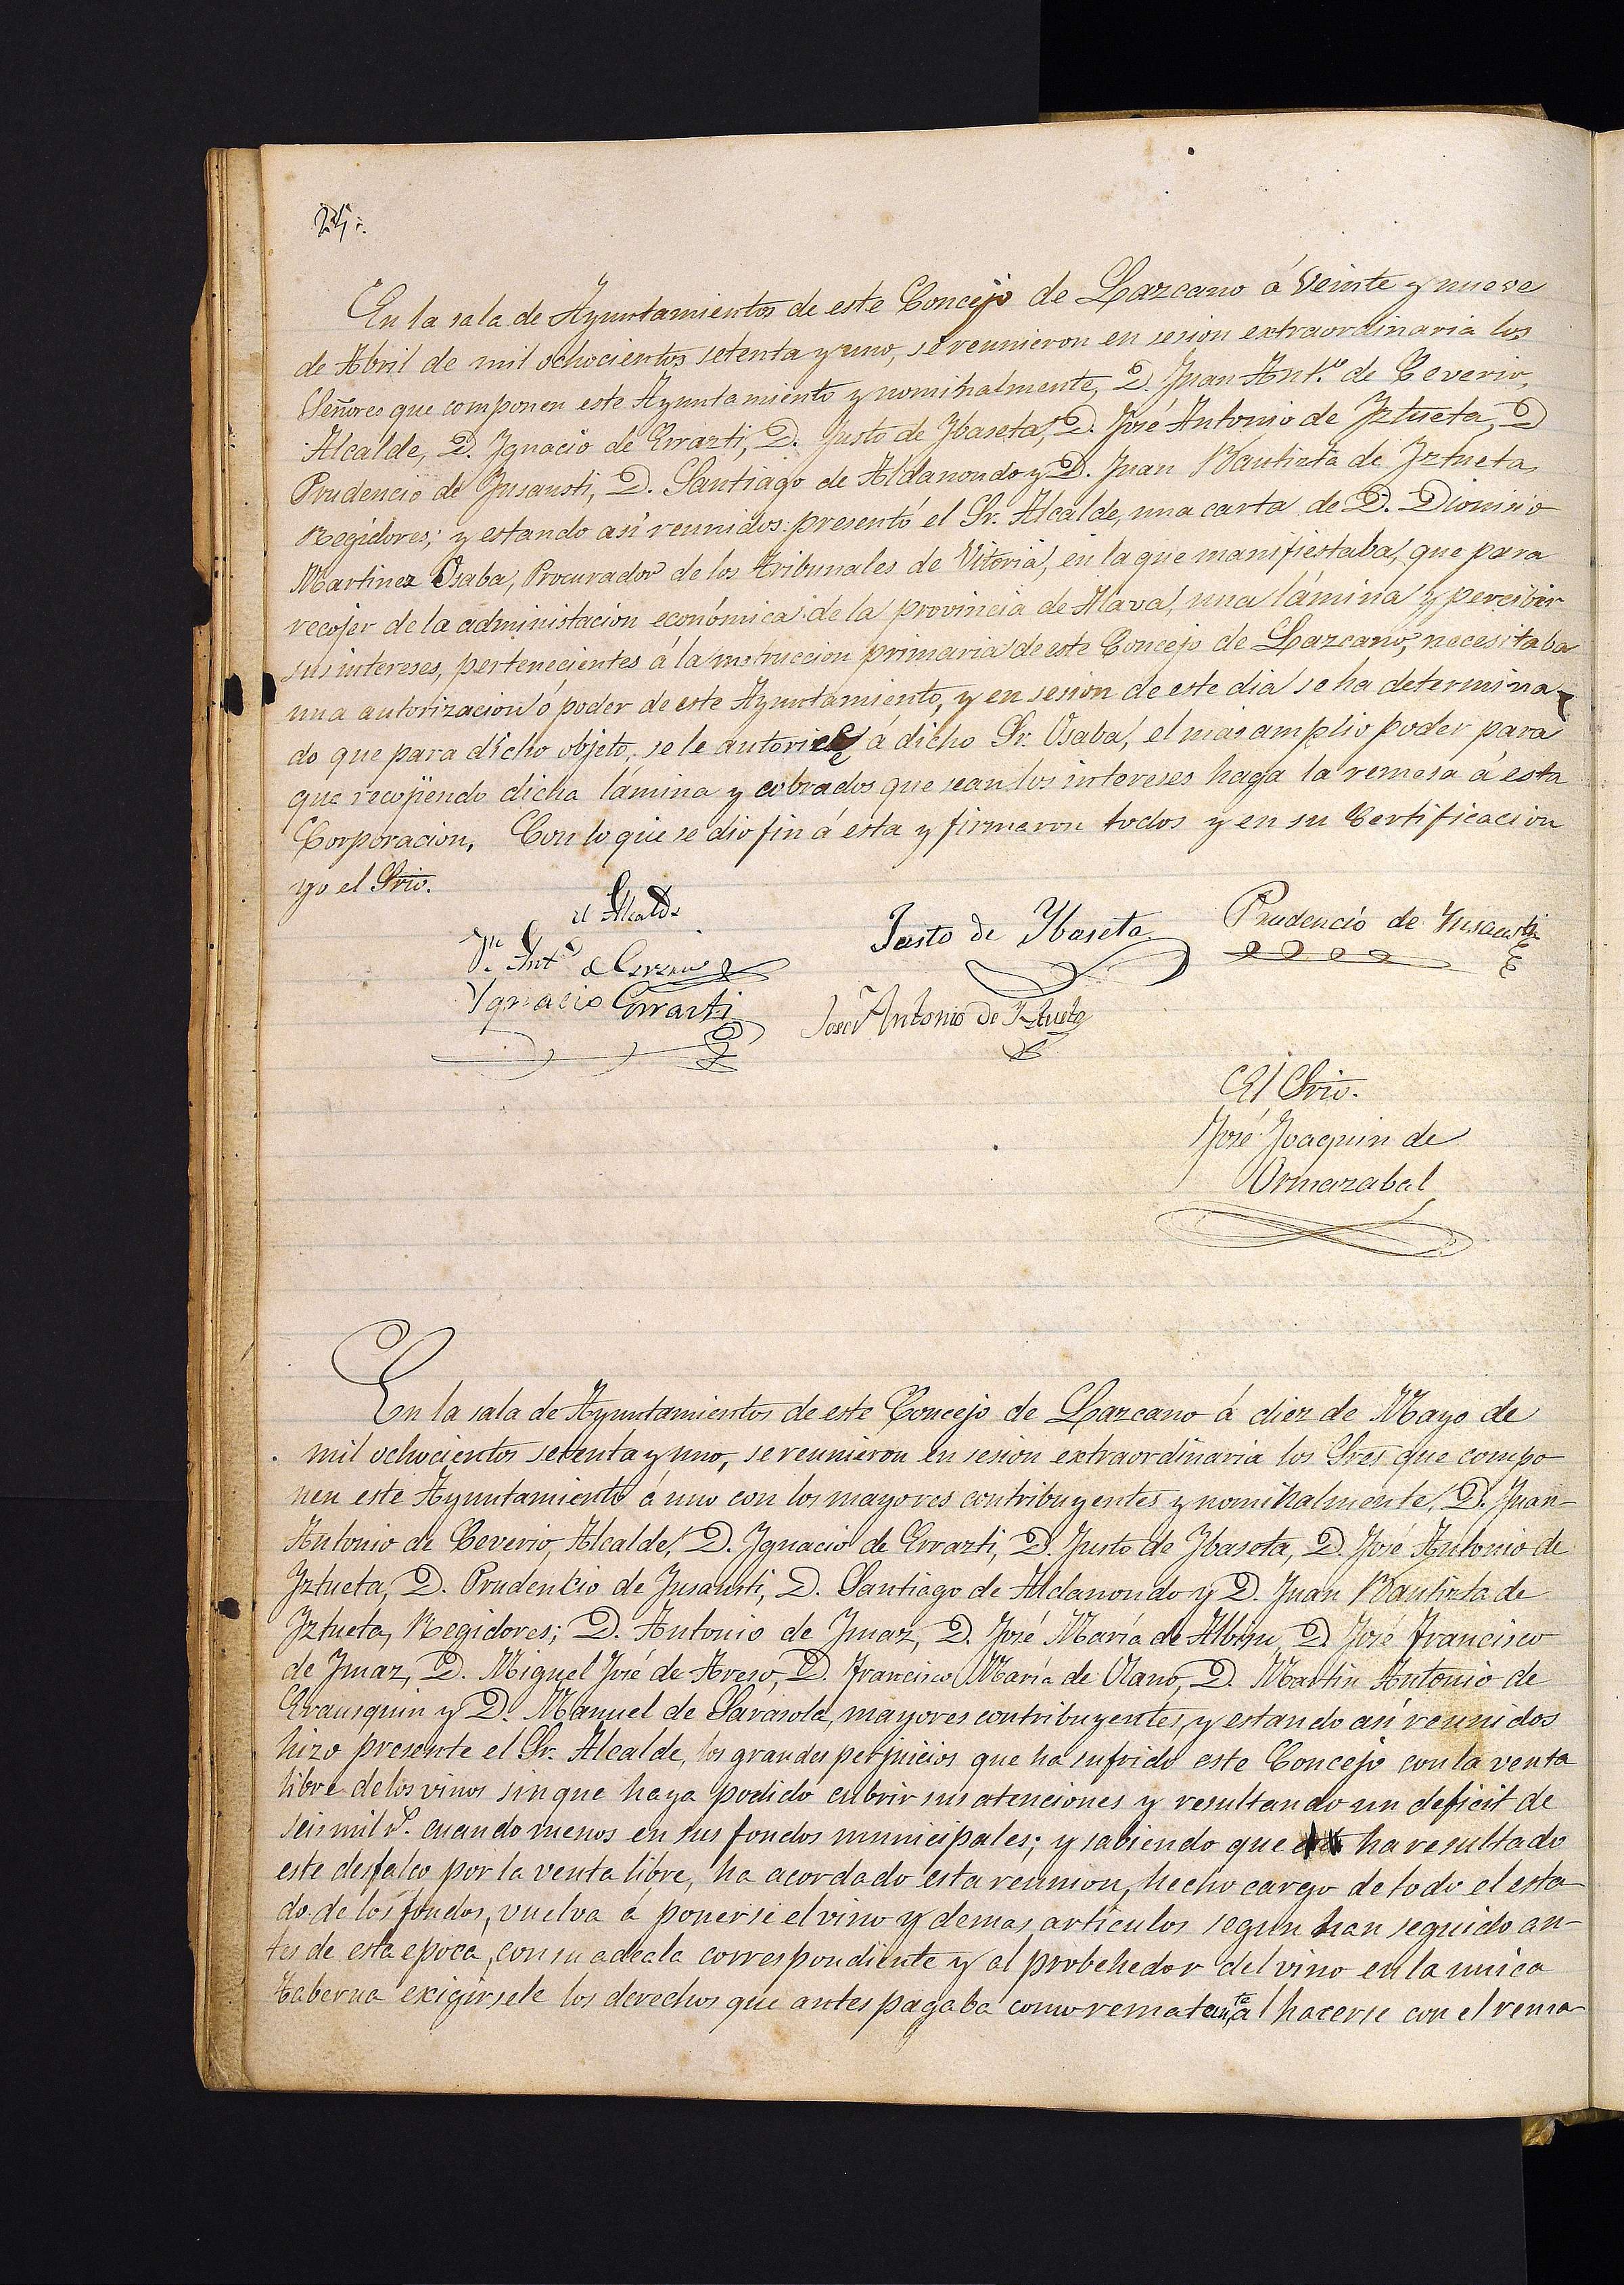 En la sala de Ayuntamientos de este Concejo de Lazcano á Veinte y nueve
de Abril de mil ochocientos setenta y uno, se reunieron en sesion extraordinaria los
Señores que componen este Ayuntamiento y nominalmente, D. Juan Ant.º de Ceverio,
Alcalde, D. Ignacio de Errazti, D. Justo de Ybaseta, D. José Antonio de Iztueta, D
Prudencio de Insausti, D. Santiago de Aldanondo y D. Juan Bautista de Iztueta,
Regidores; y estando asi reunidos presentó el Sr. Alcalde, una carta de D. Dionisio
Martinez Osaba, Procurador de los tribunales de Vitoria, en la que manifiestaba, que para
recojer de la administacion económica de la provincia de Alava, una lámina y percibir
sus intereses, pertenecientes á la instruccion primaria de este Concejo de Lazcano, necesitaba
una autorizacion ó poder de este Ayuntamiento, y en sesion de este dia se ha determina-
do que para dicho objeto, se le autorice á dicho Sr. Osaba, el mas amplio poder para
que recojiendo dicha lámina y cobrados que sean los intereses haga la remesa á esta
Corporacion. Con lo que se dio fin á esta y firmaron todos y en su Certificacion
yo el Srio.
el Alcalde
Jn. Antº de Ceverio
Justo de Ybaseta
Prudencio de Insausti
Ygnacio Errazti
José Antonio de Iztueta
El Srio.
José Joaquin de
Ormazabal
En la sala de Ayuntamientos de este Concejo de Lazcano á diez de Mayo de
mil ochocientos setenta y uno, se reunieron en sesion extraordinaria los Sres que compo
nen este Ayuntamiento á una con los mayores contribuyentes y nominalmente, D. Juan-
Antonio de Ceverio, Alcalde, D. Ignacio de Errazti, D. Justo de Ybaseta, D. José Antonio de
Iztueta, D. Prudencio de Insausti, D. Santiago de Aldanondo y D. Juan Bautista de
Iztueta, Regidores; D. Antonio de Imaz, D. José María de Albisu, D. José Francisco
de Imaz, D. Miguel José de Areso, D. Francisco María de Olano, D. Martin Antonio de
Erausquin y D. Manuel de Sarasola, mayores contribuyentes, y estando asi reunidos
hizo presente el Sr. Alcalde, los grandes perjuicios que ha sufrido este Concejo con la venta
libre de los vinos sin que haya podido cubrir sus atenciones y resultando un deficit de
seis mil rs. cuando menos en sus fondos municipales; y sabiendo que ha resultado
este desfalco por la venta libre, ha acordado esta reunion, hecho cargo de todo el esta
do de los fondos, vuelva á ponerse el vino y demas articulos segun han seguido an-
tes de esta epoca, con su adeala correspondiente y al probehedor del vino en la unica
taberna exigirsele los derechos que antes pagaba como rematante al hacerse con el rema-